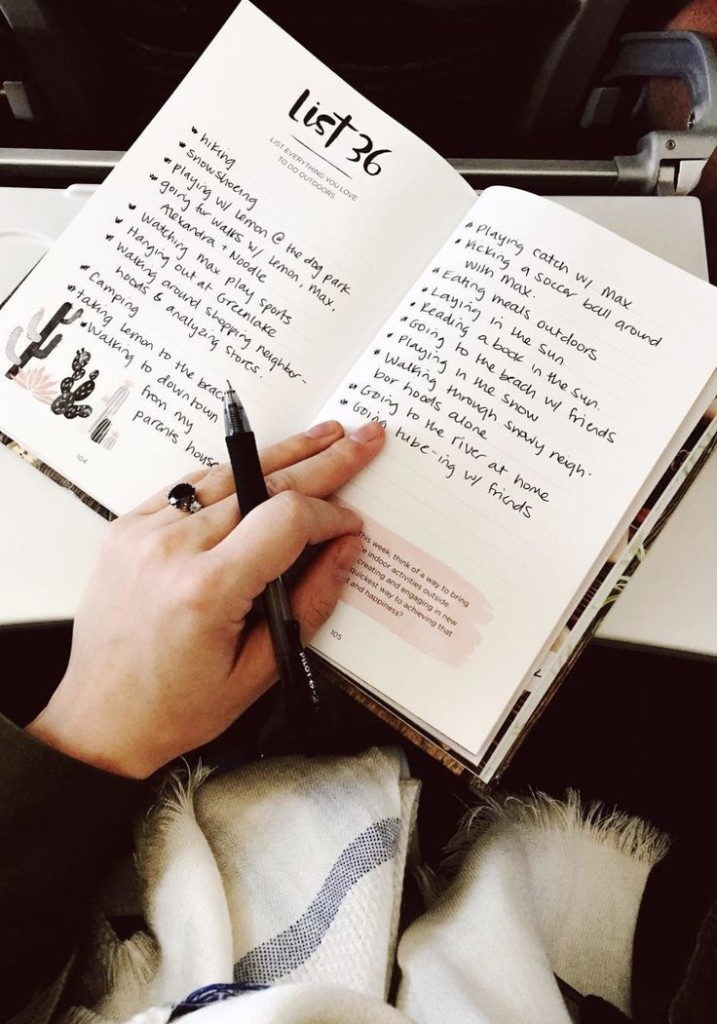 List 36
LIST EVERYTHING YOU LOVE
TO DO OUTDOORS
hiking
snowshoeing
playing w/ Lemon @ the dog park
going for walks w/ Lemon, Max,
Alexandra + Noodle
Watching Max play sports
Hanging out at Greenlake
Walking around shopping neighbor-
hoods & analyzing stores.
Camping
taking Lemon to the beach
Walking to downtown
from my
parents house
104
Playing catch w/ Max
Kicking a soccer ball around
with Max.
Eating meals outdoors
Laying in the sun
Reading a book in the sun.
Going to the beach w/ friends
Playing in the snow
Walking through snowy neigh-
bor hoods alone
Going to the river at home
Going tube-ing w/ friends
This week, think of a way to bring
indoor activities outside
creating and engaging in new
quickest way to achieving that
and happiness?
105
PILOT G-2